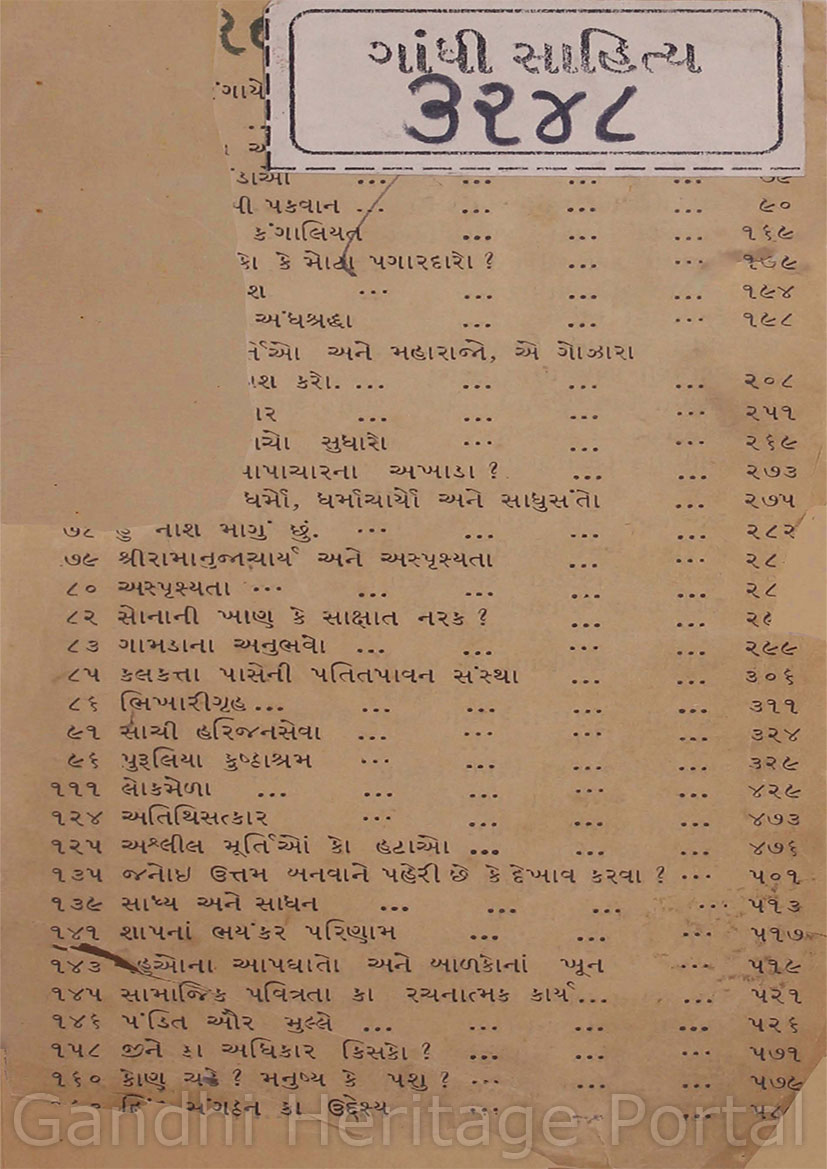 ગાંધી સાહિત્ય
૩૨૪૮
ંગાયે
...
ંડાઓ ... ... ... ... ૭૯
પકવાન ... ... ... ... ૯૦
કંગાલિયત ... ... ... ૧૬૯
કો કે મોટા પગારદારો ? ... ... ૧૭૯
શ ... ... ... ... ૧૯૪
અંધશ્રદ્ધા ... ... ... ૧૯૮
ર્તિઓ અને મહારાજો, એ ગોઝારા
ાશ કરો. ... ... ... ... ૨૦૮
ાર ... ... ... ... ૨૫૧
ાચો સુધારો ... ... ... ૨૬૯
પાપાચારના અખાડા ? ... ... ૨૭૩
ધર્મો, ધર્માચાર્યો અને સાધુસંતો ... ૨૭૫
૭૮ હું નાશ માગું છું. ... ... ... ... ૨૮૨
૭૯ શ્રીરામાનુજાચાર્ય અને અસ્પૃશ્યતા ... ... ૨૮
૮૦ અસ્પૃશ્યતા ... ... ... ... ... ૨૮
૮૨ સોનાની ખાણ કે સાક્ષાત નરક ? ... ... ૨૯
૮૩ ગામડાના અનુભવો ... ... ... ... ૨૯૯
૮૫ કલકત્તા પાસેની પતિતપાવન સંસ્થા ... ... ૩૦૬
૮૬ ભિખારીગૃહ ... ... ... ... ... ૩૧૧
૯૧ સાચી હરિજનસેવા ... ... ... ... ૩૨૪
૯૬ પુરૂલિયા કુષ્ટાશ્રમ ... ... ... ... ૩૨૯
૧૧૧ લોકમેળા ... ... ... ... ... ૪૨૯
૧૨૪ અતિથિસત્કાર ... ... ... ... ૪૭૩
૧૨૫ અશ્લીલ મૂર્તિઓં કો હટાઓ ... ... ... ૪૭૬
૧૩૫ જનોઇ ઉત્તમ બનવાને પહેરી છે કે દેખાવ કરવા ? ... ૫૦૧
૧૩૯ સાધ્ય અને સાધન ... ... ... ... ૫૧૩
૧૪૧ શાપનાં ભયંકર પરિણામ ... ... ... ૫૧૭
૧૪૩ હુઓના આપઘાતો અને બાળકોનાં ખૂન ... ૫૧૯
૧૪૫ સામાજિક પવિત્રતા કા રચનાત્મક કાર્ય ... ... ૫૨૧
૧૪૬ પંડિત ઔર મુલ્લે ... ... ... ... ૫૨૬
૧૫૮ જીને કા અધિકાર કિસકો ? ... ... ... ૫૭૧
૧૬૦ કોણ ચઢે ? મનુષ્ય કે પશુ ? ... ... ... ૫૭૯
સંગઠન કા ઉદ્દેશ્ય ... ... ... ૫૮
Gandhi Heritage Portal